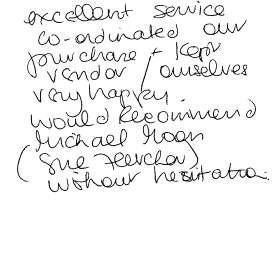 excellent service
co-ordinated our
purchase + kept
vendor / ourselves
very happy.
would recommend
Michael Moon
(Sue Fletcher)
without hesitation.